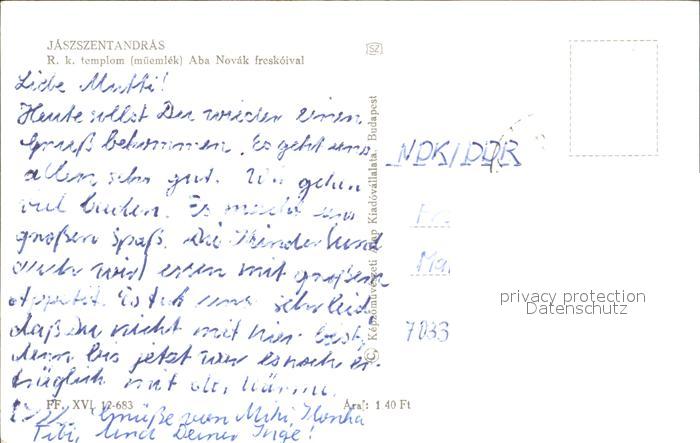 JÁSZSZENTANDRÁS
R. k. templom (műemlék) Aba Novák freskóival
SZ
Liebe Mutti!
Heute sollst Du wieder einen
Gruß bekommen. Es geht uns
allen sehr gut. Wir gehen
viel baden. Es macht uns
großen Spaß. Die Kinder (und
auch wir) essen mit großem
Appetit. Es tut uns sehr leid,
daß Du nicht mit hier bist,
denn bis jetzt war es noch er-
träglich mit der Wärme.
Grüße von Miki, Ilonka
Tibi, und Deiner Inge!
© Képzőművészeti Alap Kiadóvállalata, Budapest
NDK/DDR
Fr
Ma
7033
privacy protection
Datenschutz
FF. XVI. 12-683
Ára: 1 40 Ft